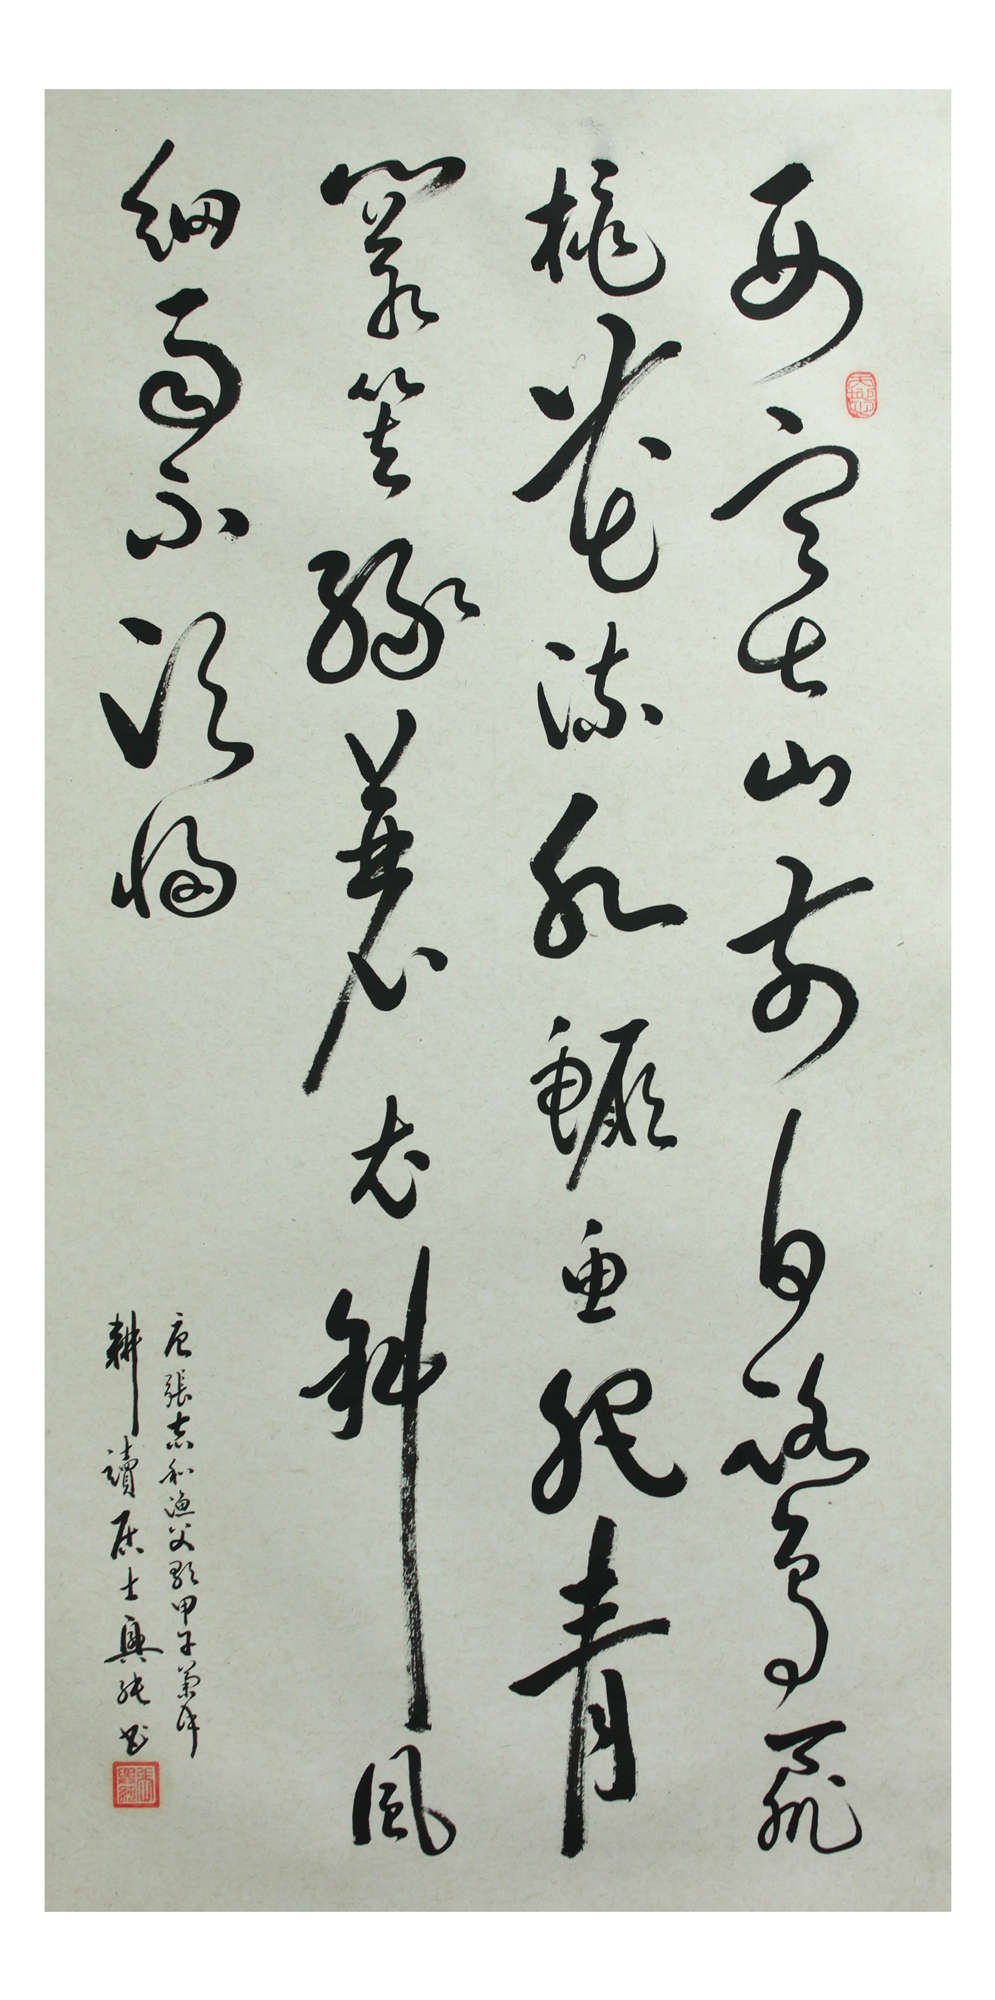 西塞山前白鷺飛
桃花流水鱖魚肥青
箬笠綠蓑衣斜風
細雨不須歸
唐張志和漁父歌甲子菊月
耕讀居士興能書